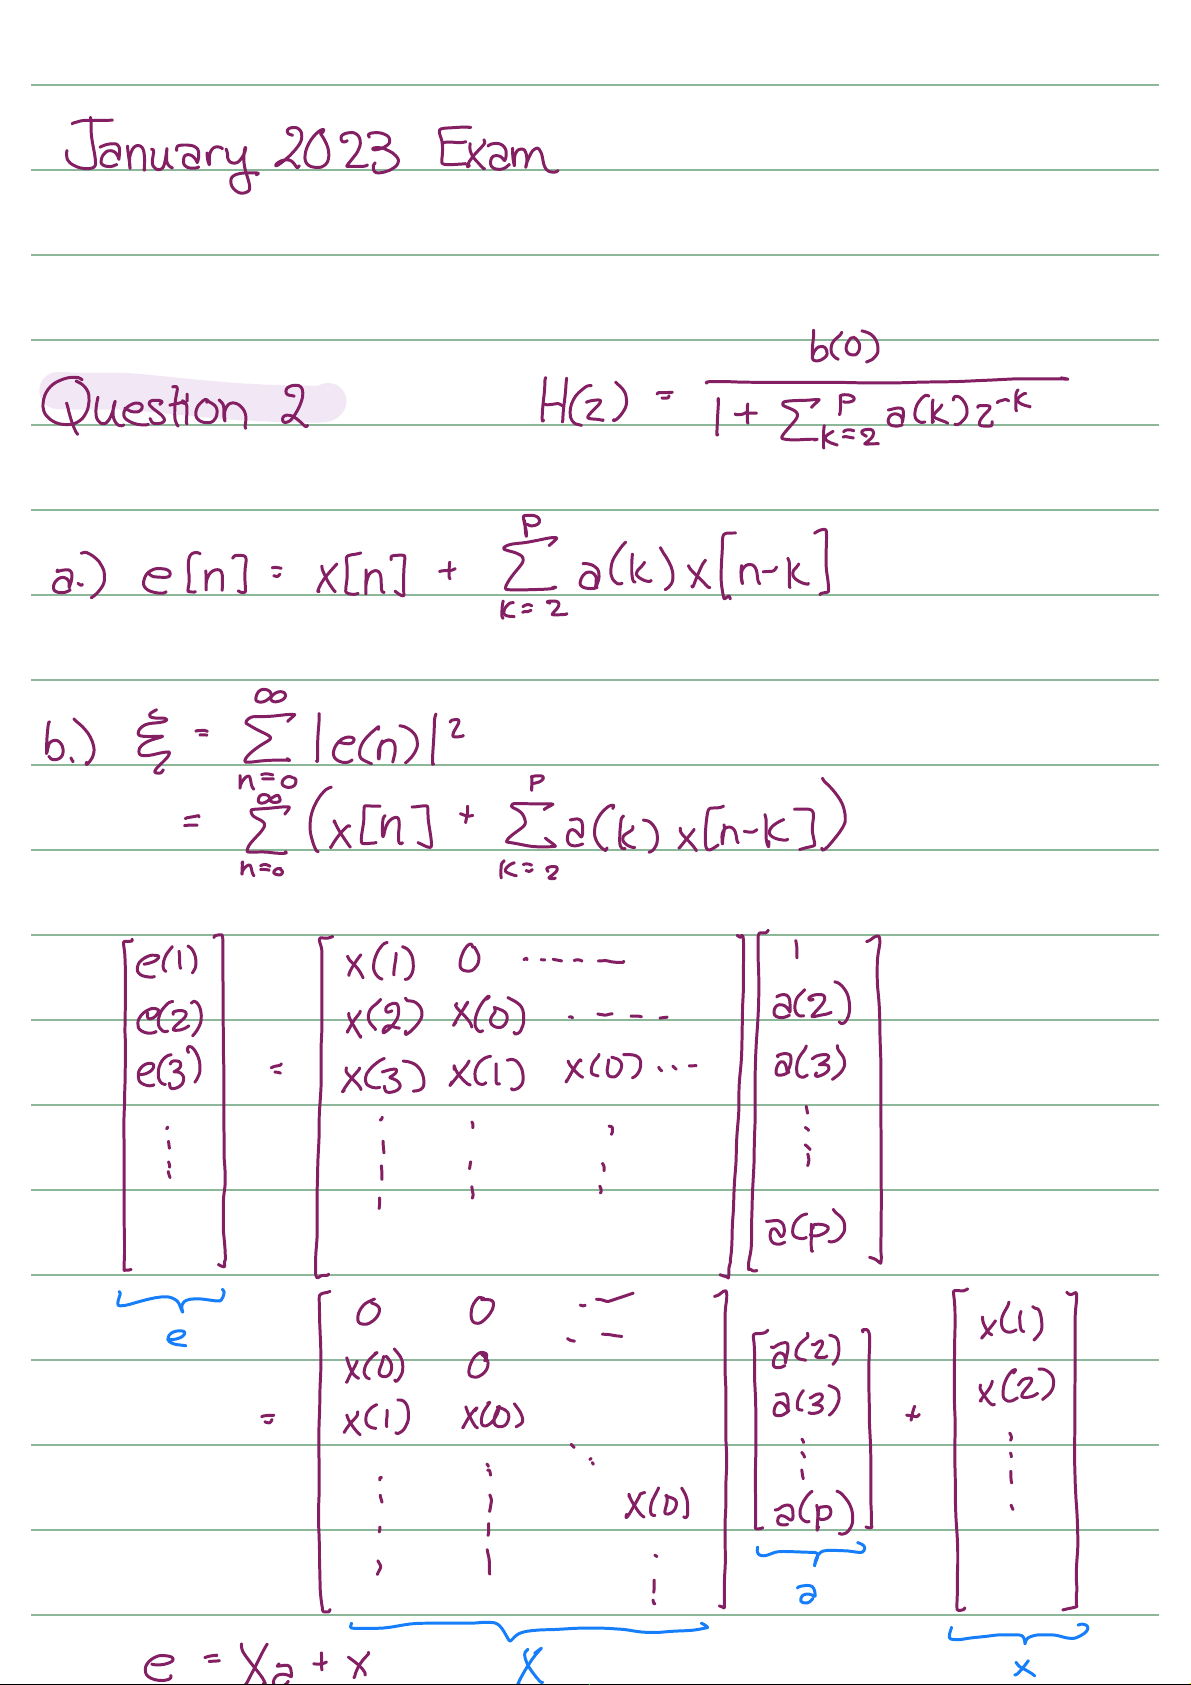 January 2023 Exam
Question 2 H(z) = b(0) / (1 + ∑_{k=2}^{p} a(k)z^{-k})
a.) e[n] = x[n] + ∑_{k=2}^{p} a(k)x[n-k]
b.) ξ = ∑_{n=0}^{∞} |e(n)|²
= ∑_{n=0}^{∞} (x[n] + ∑_{k=2}^{p} a(k)x[n-k])
[e(1) e(2) e(3) ⋮] = [x(1) 0 ⋯⋯; x(2) x(0) ⋯; x(3) x(1) x(0) ⋯; ⋮ ⋮ ⋮] [1 a(2) a(3) ⋮ a(p)]
e
= [0 0 ⋯; x(0) 0 ⋯; x(1) x(0) ⋱; ⋮ ⋮ x(0); ⋮] [a(2) a(3) ⋮ a(p)] + [x(1) x(2) ⋮]
X a x
e = Xa + x